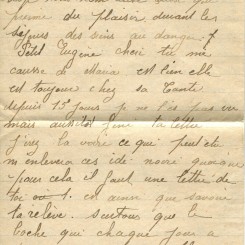 prenne du plaisir durant les
séjours des soins au danger.
Petit Eugène cheri tu me
causse de Maria est bien elle
est toujour chez sa Tante
depuis 15 jours je ne l'ès pas vu
mais aussitot fini ta lettre
j'irez la voire ce qui peut etr
m enlevera ces idé noire quoique
pour cela il faut une lettre de
toi ou
ta relève. surtous que le
boche qui chaque jour a